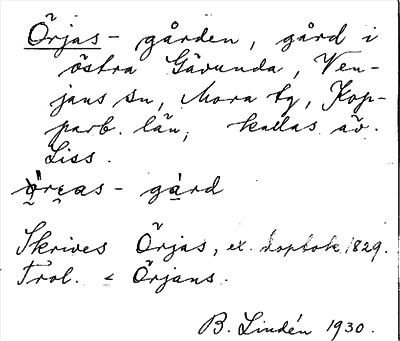 Örjas-gården, gård i
östra Gävunda, Ven-
jans sn, Mora tg, Kop-
parb. län; kallas äv.
Liss.
ö̬rɛas-gård
Skrives Örjas, ex. dopbok 1829.
Trol. < Örjans.
B. Lindén 1930.